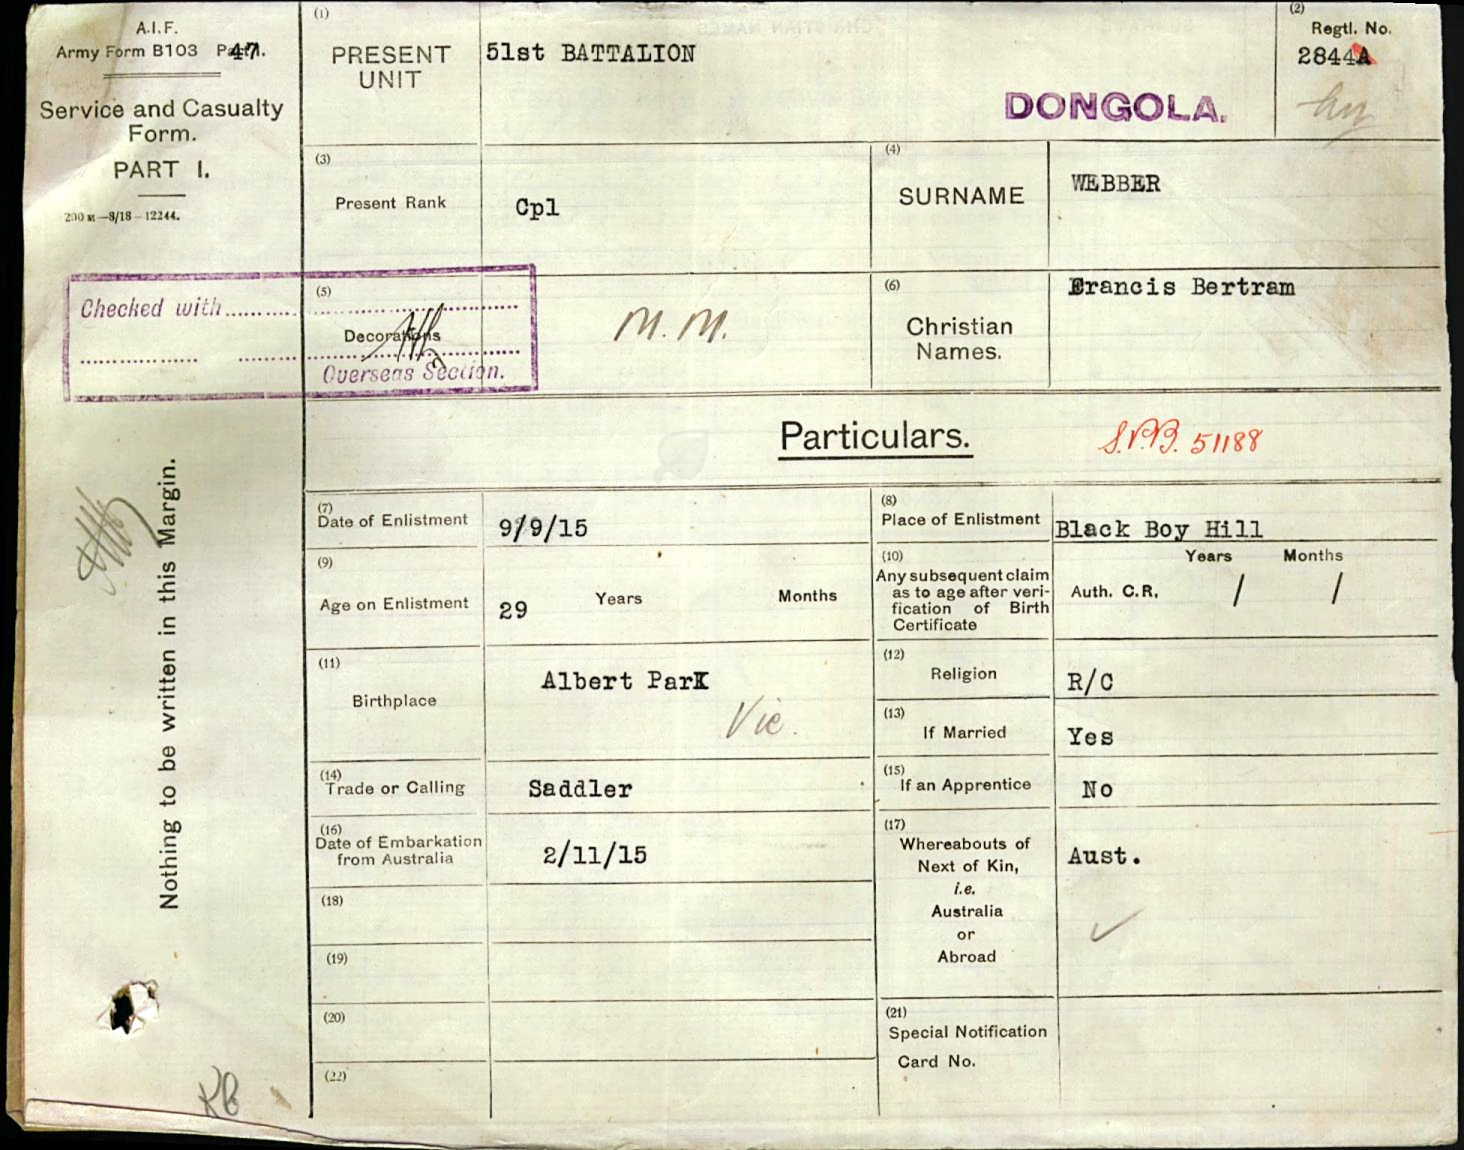 A.I.F.
Army Form B103 Part 1.
47
Service and Casualty
Form.
PART I.
200 M—8/18—12244.
(1)
PRESENT
UNIT
51st BATTALION
DONGOLA.
(2)
Regtl. No.
2844A
(3)
Present Rank
Cpl
(4)
SURNAME
WEBBER
Checked with
Overseas Section.
(5)
Decorations
M.M.
(6)
Christian
Names.
Francis Bertram
Particulars.
S.P.B. 51188
Nothing to be written in this Margin.
(7)
Date of Enlistment
9/9/15
(8)
Place of Enlistment
Black Boy Hill
(9)
Age on Enlistment
29
Years
Months
(10)
Any subsequent claim
as to age after veri-
fication of Birth
Certificate
Years Months
Auth. C.R. / /
(11)
Birthplace
Albert Park
Vic.
(12)
Religion
R/C
(13)
If Married
Yes
(14)
Trade or Calling
Saddler
(15)
If an Apprentice
No
(16)
Date of Embarkation
from Australia
2/11/15
(17)
Whereabouts of
Next of Kin,
i.e.
Australia
or
Abroad
Aust.
(18)
(19)
(20)
(21)
Special Notification
Card No.
(22)
KB